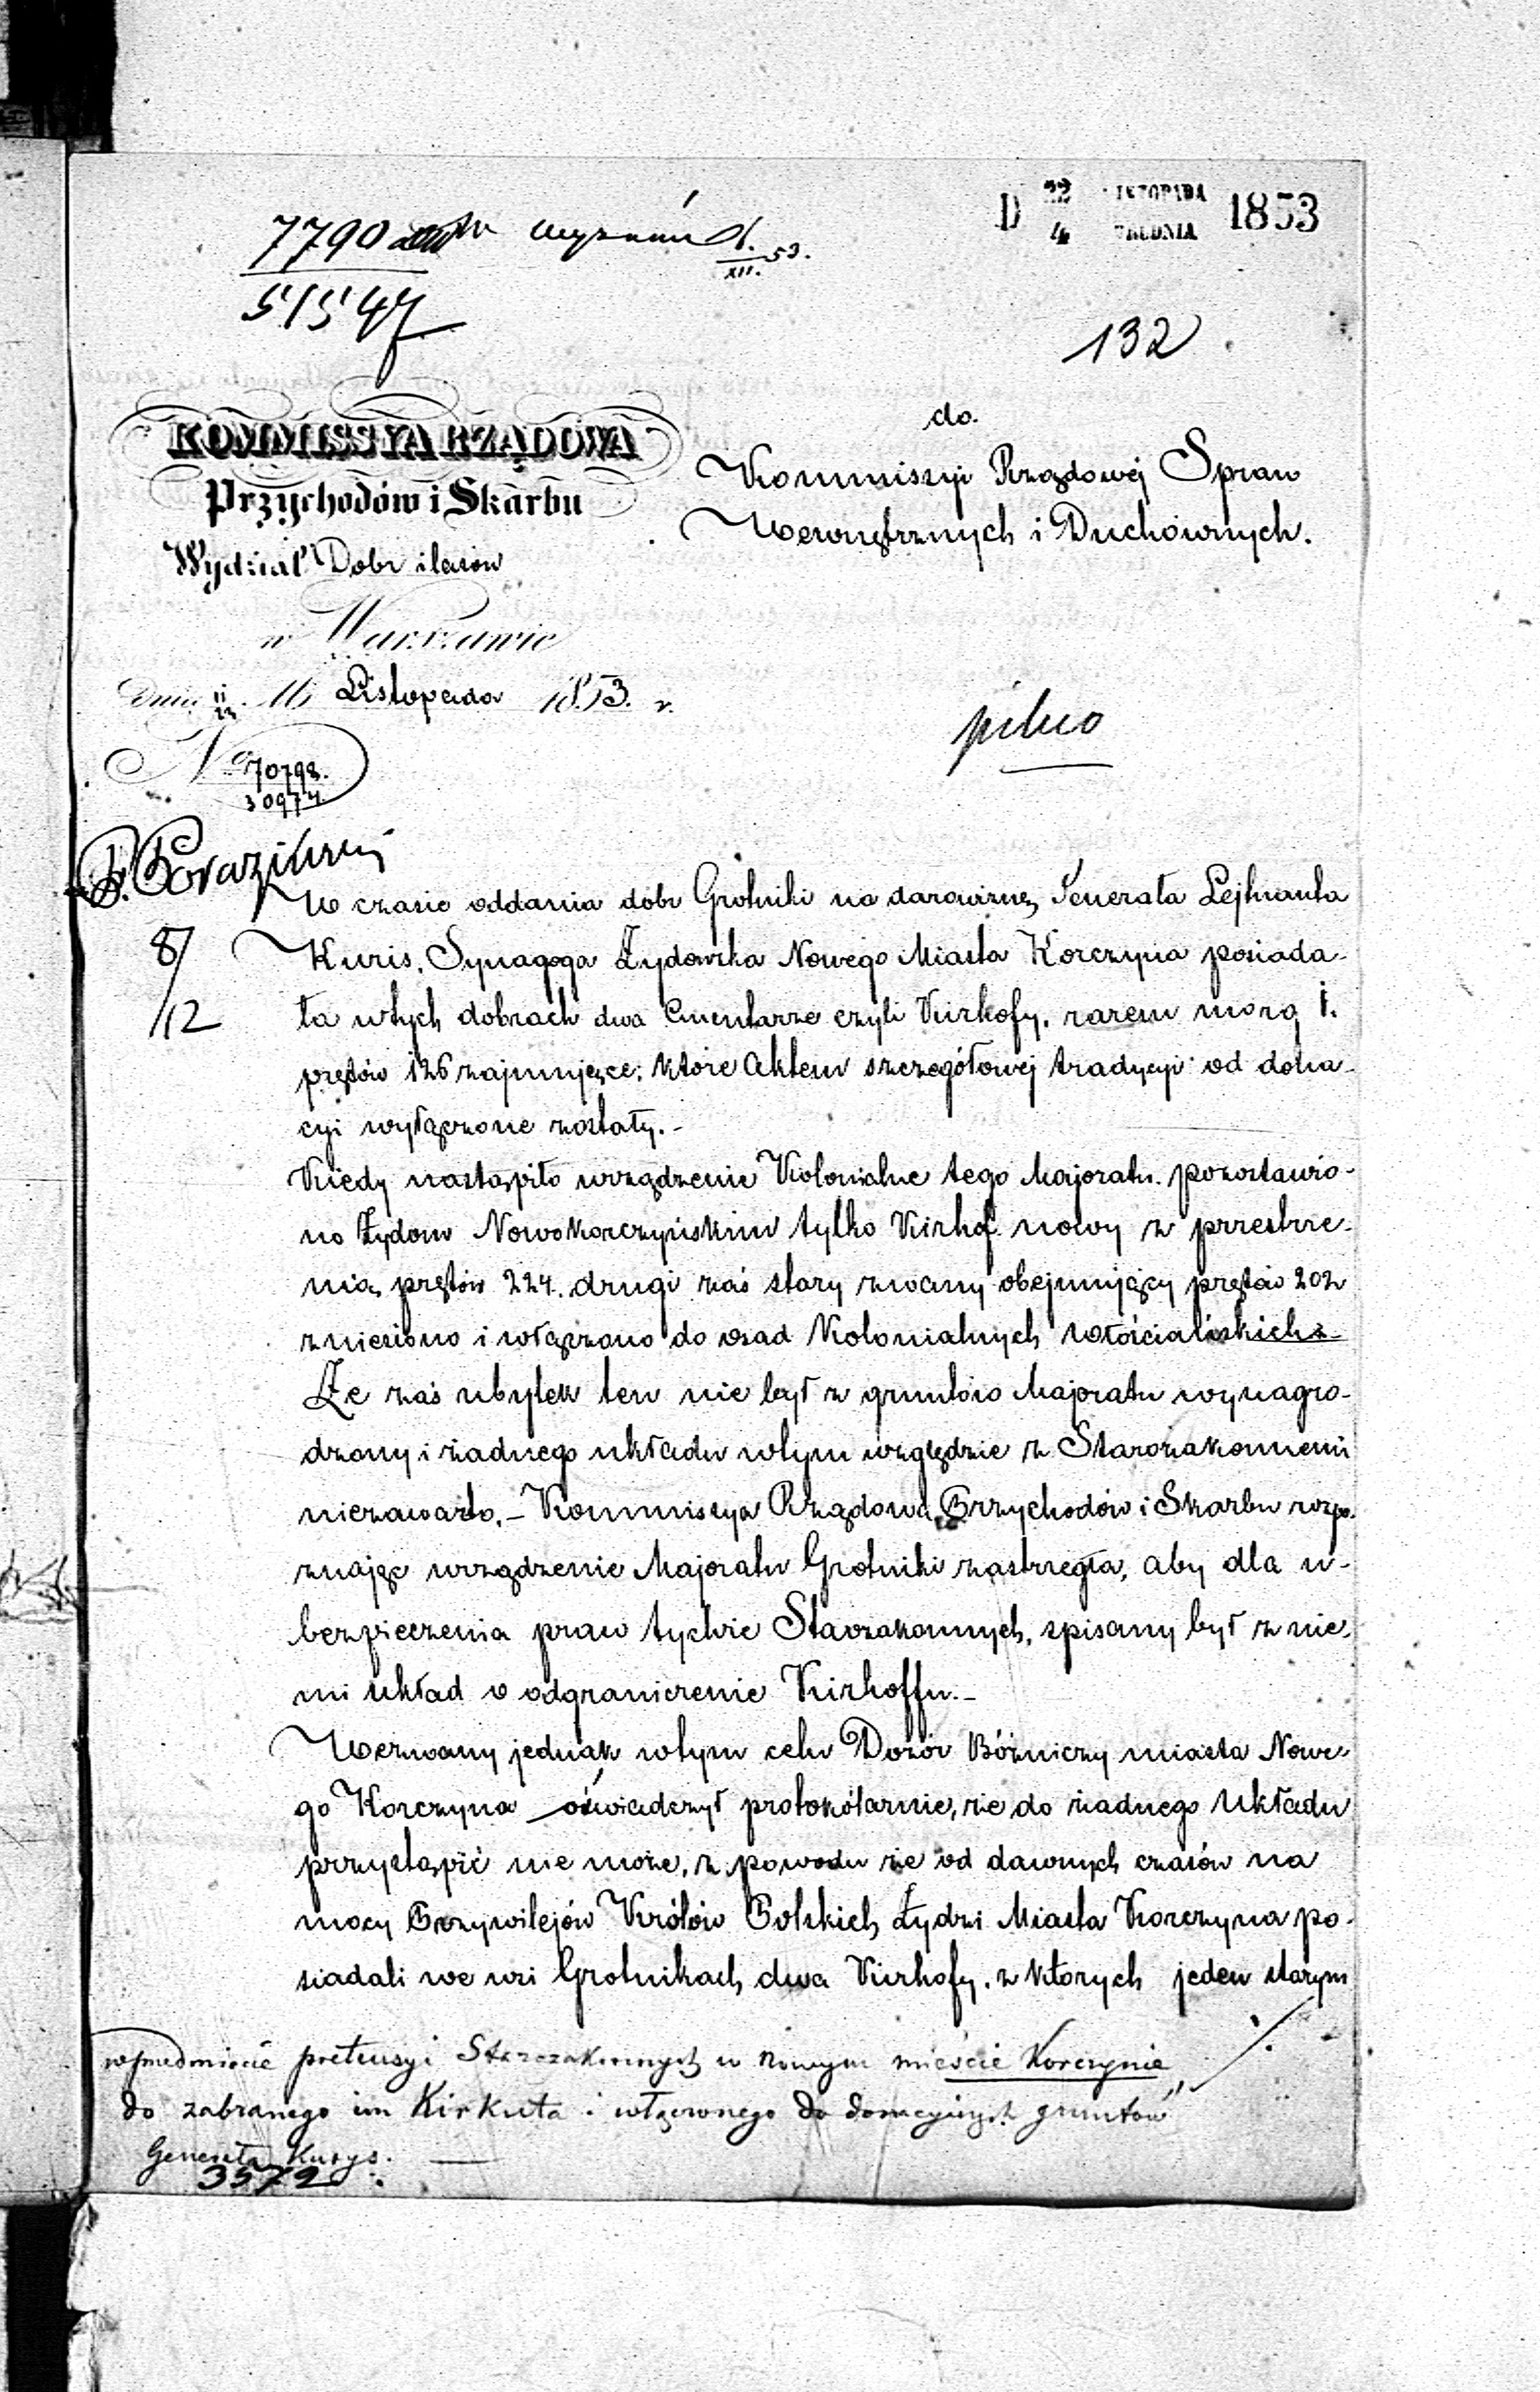 D 22 LISTOPADA 1853
4 GRUDNIA
7790 wyznań 1. XII. 53.
51547
132
KOMMISSYA RZĄDOWA
Przychodów i Skarbu
Wydział Dobr i lasów
w Warszawie
Dnia 11/23 Listopada 1853. r.
No 70798.
30974
do.
Kommissyi Rządowej Spraw
Wewnętrznych i Duchownych.
pilno
8/12
W czasie oddania dobr Grotniki na darowiznę Generała Lejtnanta
Kuris, Synagoga Żydowska Nowego Miasta Korczyna posiada-
ła wtych dobrach dwa Cmentarze czyli Kirkofy, razem morg 1.
prętów 126 zajmujące; które aktem szczegółowej tradycyi od dona-
cyi wyłączone zostały.-
Kiedy nastąpiło urządzenie Kolonialne tego Majoratu. pozostawio-
no Żydom Nowokorczyńskim tylko Kirhof nowy z przestrze-
nią prętów 224. drugi zaś stary zwany obejmujący prętów 202
zniesiono i włączono do osad Kolonialnych włościańskich.-
Że zaś ubytek ten nie był z gruntów Majoratu wynagro-
dzony i żadnego układu wtym względzie z Starozakonnemi
niezawarto.- Kommissya Rządowa Przychodów i Skarbu rozpo-
znając urządzenie Majoratu Grotniki zastrzegła, aby dla u-
bezpieczenia praw tychże Starozakonnych, spisany był z nie-
mi układ o odgraniczenie Kirhoffu.-
Wezwany jednak wtym celu Dozór Bóżniczy miasta Nowe-
go Korczyna oświadczył protokólarnie, że do żadnego Układu
przystąpić nie może, z powodu że od dawnych czasów na
mocy Przywilejów Królów Polskich Żydzi Miasta Korczyna po-
siadali we wsi Grotnikach dwa Kirhofy, z których jeden starym
w przedmiocie pretensyi Starozakonnych w nowym mieście Korczynie
do zabranego im Kirkuta i włączonego do donacyjnych gruntów
Generała Kurys.
3572